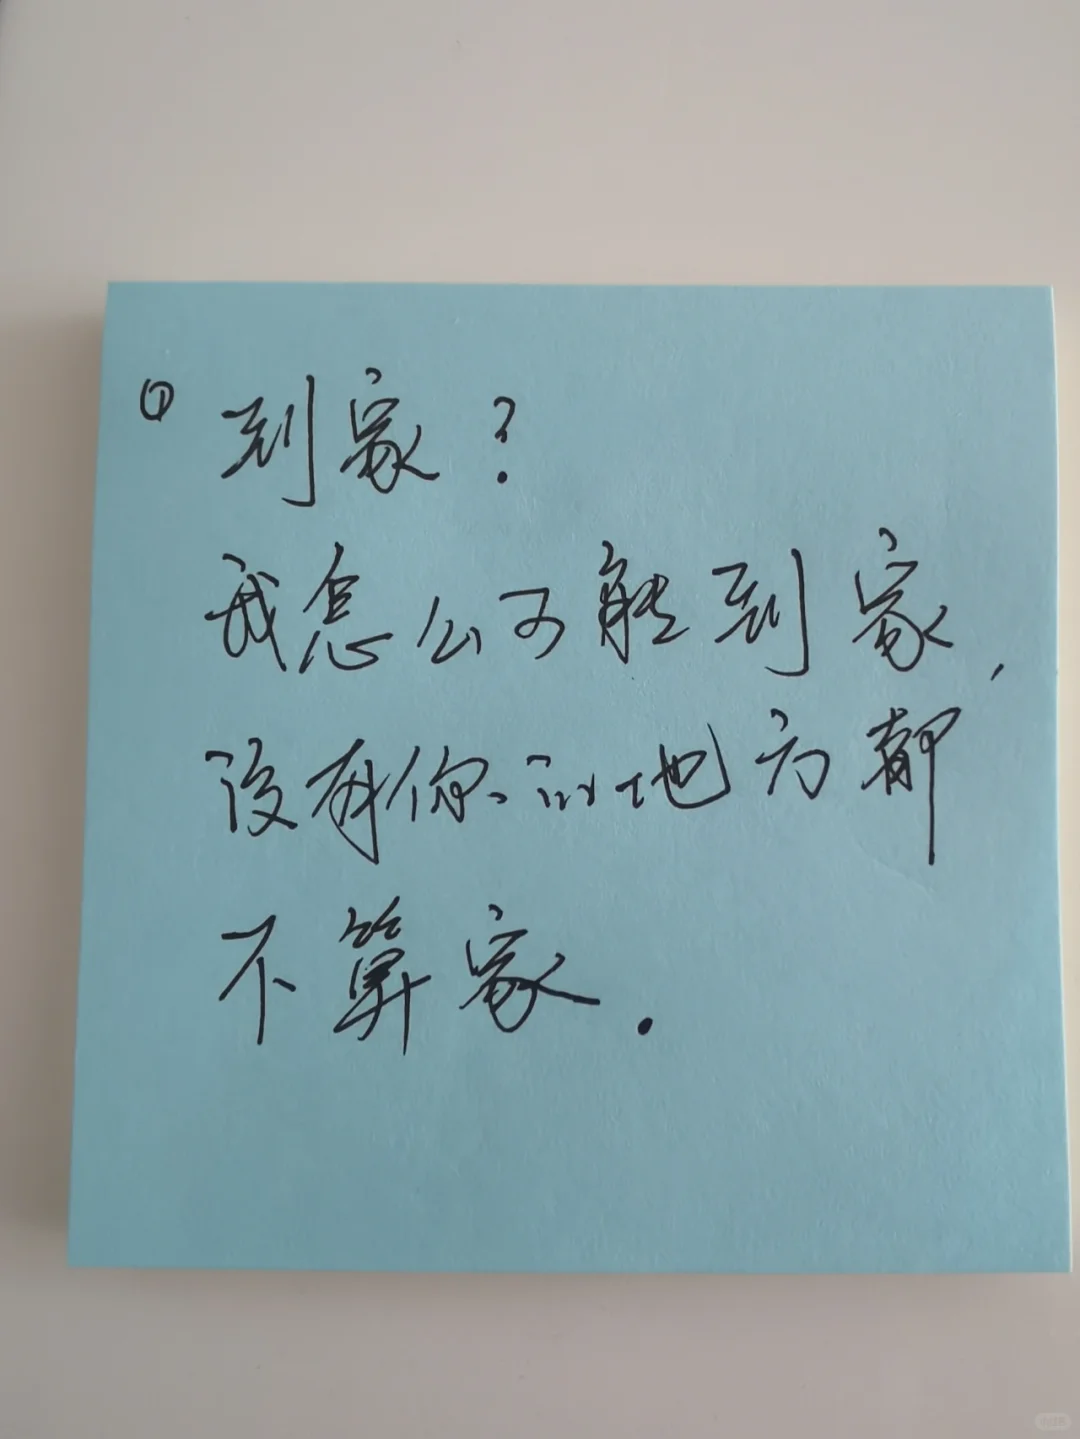 ① 到家？
我怎么可能到家，
没有你的地方都
不算家.